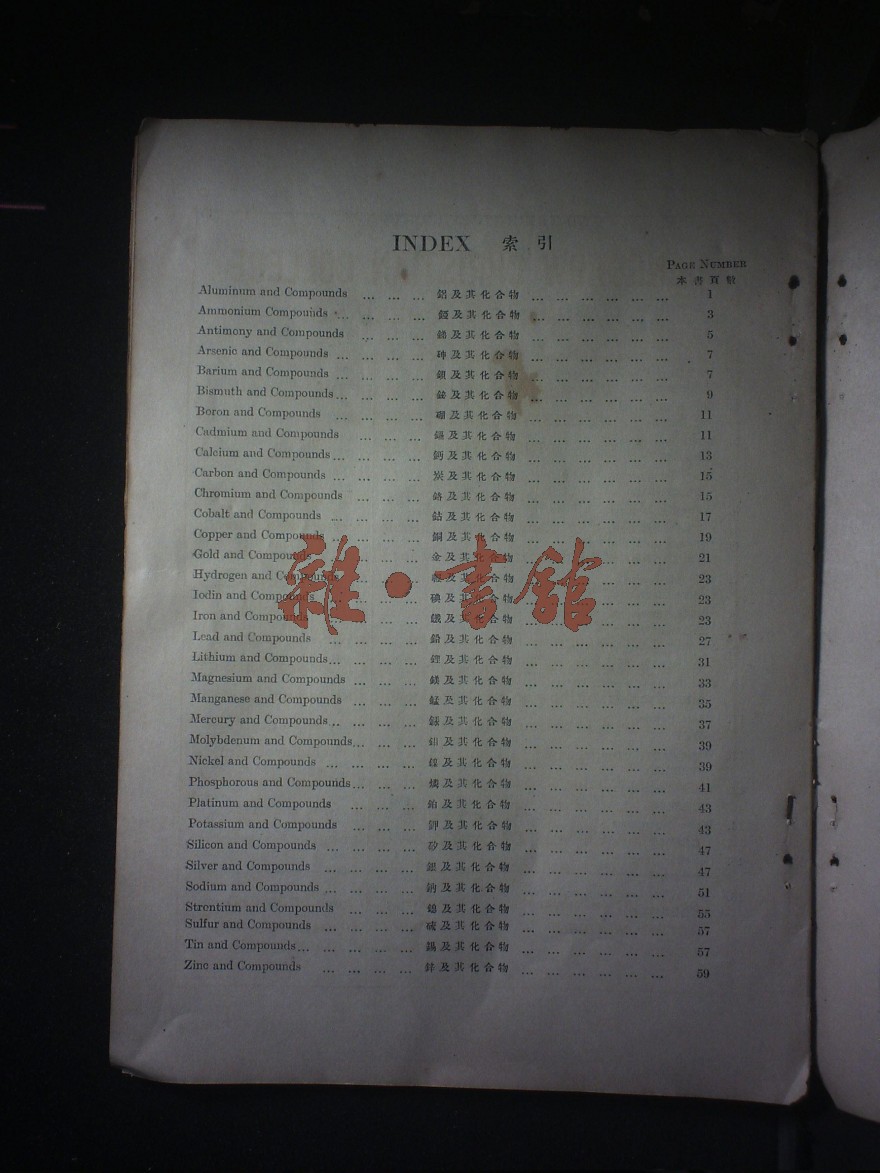 INDEX 索引
PAGE NUMBER
本書頁數
Aluminum and Compounds ... ... ... 鋁及其化合物 ... ... ... ... ... ... 1
Ammonium Compounds ... ... ... ... 及其化合物 ... ... ... ... ... ... 3
Antimony and Compounds ... ... ... 銻及其化合物 ... ... ... ... ... ... 5
Arsenic and Compounds ... ... ... ... 砷及其化合物 ... ... ... ... ... ... 7
Barium and Compounds ... ... ... ... 鋇及其化合物 ... ... ... ... ... ... 7
Bismuth and Compounds... ... ... ... 鉍及其化合物 ... ... ... ... ... ... 9
Boron and Compounds ... ... ... ... 硼及其化合物 ... ... ... ... ... ... 11
Cadmium and Compounds ... ... ... 鎘及其化合物 ... ... ... ... ... ... 11
Calcium and Compounds... ... ... ... 鈣及其化合物 ... ... ... ... ... ... 13
Carbon and Compounds ... ... ... ... 炭及其化合物 ... ... ... ... ... ... 15
Chromium and Compounds ... ... ... 鉻及其化合物 ... ... ... ... ... ... 15
Cobalt and Compounds ... ... ... ... 鈷及其化合物 ... ... ... ... ... ... 17
Copper and Compounds ... ... ... ... 銅及其化合物 ... ... ... ... ... ... 19
Gold and Compounds ... ... ... ... 金及其化合物 ... ... ... ... ... ... 21
Hydrogen and Compounds ... ... ... 及其化合物 ... ... ... ... ... ... 23
Iodin and Compounds ... ... ... ... 碘及其化合物 ... ... ... ... ... ... 23
Iron and Compounds ... ... ... ... 鐵及其化合物 ... ... ... ... ... ... 23
雜·書館
Lead and Compounds ... ... ... ... 鉛及其化合物 ... ... ... ... ... ... 27
Lithium and Compounds... ... ... ... 鋰及其化合物 ... ... ... ... ... ... 31
Magnesium and Compounds ... ... ... 鎂及其化合物 ... ... ... ... ... ... 33
Manganese and Compounds ... ... ... 錳及其化合物 ... ... ... ... ... ... 35
Mercury and Compounds .. ... ... ... 及其化合物 ... ... ... ... ... ... 37
Molybdenum and Compounds... ... ... 鉬及其化合物 ... ... ... ... ... ... 39
Nickel and Compounds ... ... ... ... 鎳及其化合物 ... ... ... ... ... ... 39
Phosphorous and Compounds... ... ... 燐及其化合物 ... ... ... ... ... ... 41
Platinum and Compounds ... ... ... 鉑及其化合物 ... ... ... ... ... ... 43
Potassium and Compounds ... ... ... 鉀及其化合物 ... ... ... ... ... ... 43
Silicon and Compounds ... ... ... ... 矽及其化合物 ... ... ... ... ... ... 47
Silver and Compounds ... ... ... ... 銀及其化合物 ... ... ... ... ... ... 47
Sodium and Compounds ... ... ... ... 鈉及其化合物 ... ... ... ... ... ... 51
Strontium and Compounds ... ... ... 鎴及其化合物 ... ... ... ... ... ... 55
Sulfur and Compounds ... ... ... ... 硫及其化合物 ... ... ... ... ... ... 57
Tin and Compounds... ... ... ... ... 錫及其化合物 ... ... ... ... ... ... 57
Zinc and Compounds ... ... ... ... 鋅及其化合物 ... ... ... ... ... ... 59